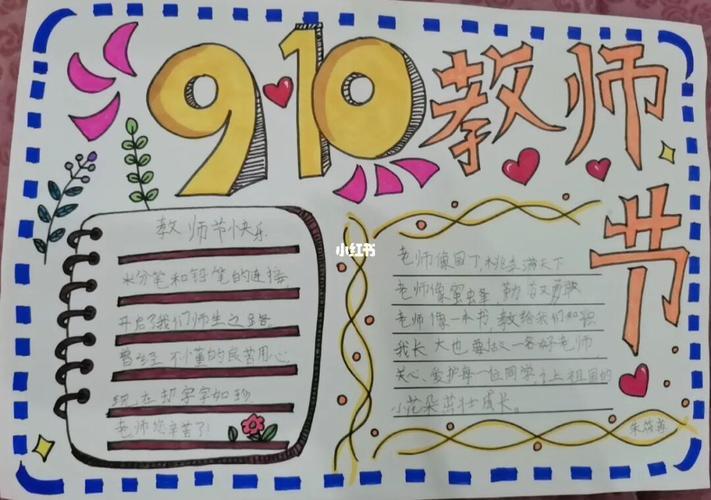 910
教师节
教师节快乐
粉笔和铅笔的连接
开启了我们师生之路
曾经 不懂的良苦用心
现在却字字如珍
老师您辛苦了!
小红书
老师像园丁,桃李满天下
老师像蜜蜂,勤
老师像一本书,教给我们知识
我长大也要做一名好老师
关心、爱护每一位同学,让祖国的
小花朵茁壮成长。